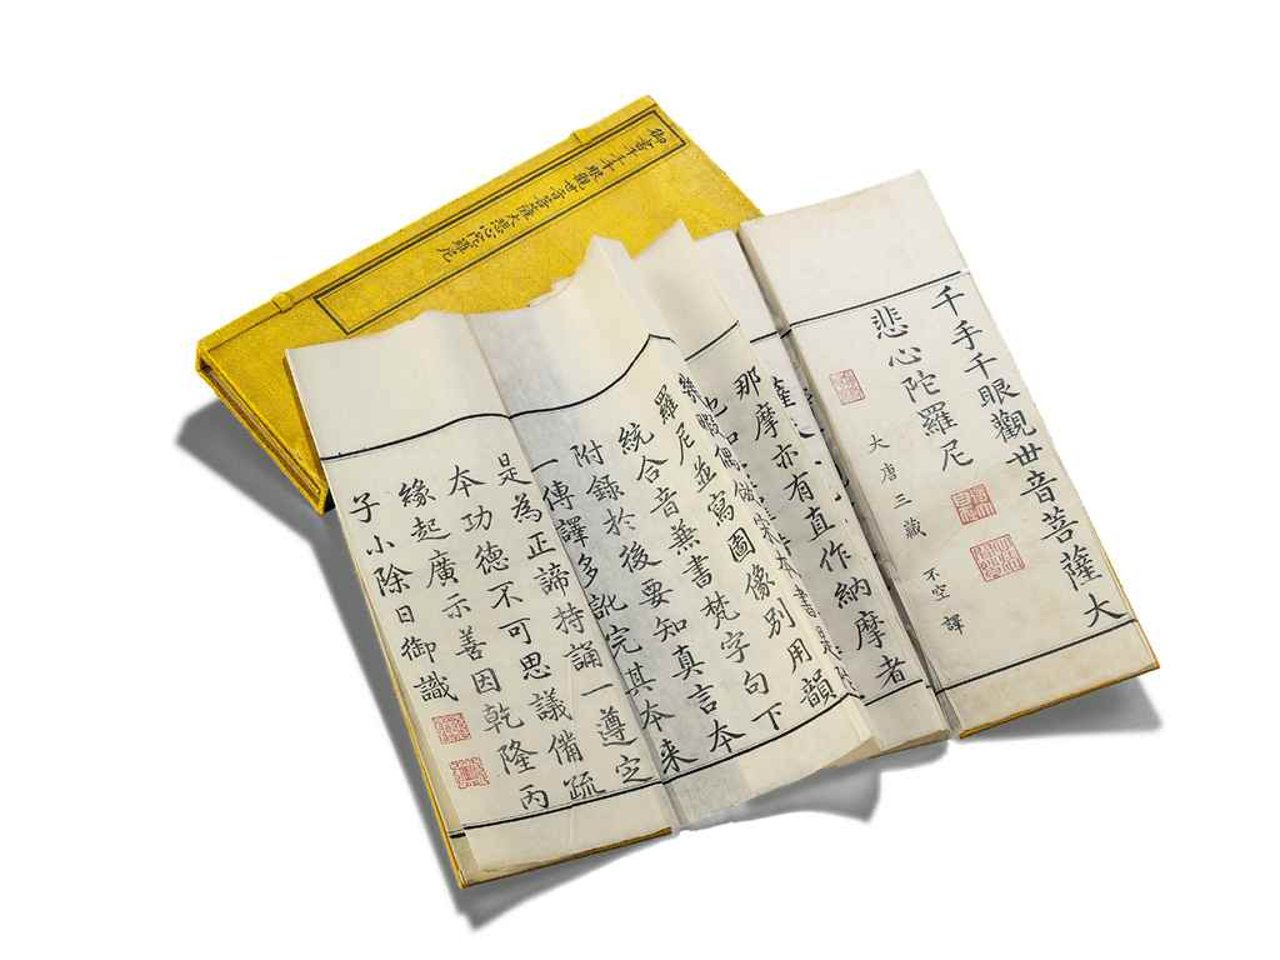 御書千手千眼觀世音菩薩大悲心陀羅尼
千手千眼觀世音菩薩大
悲心陀羅尼
大唐三藏 不空 譯
那摩亦有直作納摩者
羅尼並寫圖像別用韻
統合音兼書梵字句下
附錄於後要知真言本
一傳譯多訛完其本来
是為正諦持誦一遵定
本功德不可思議備疏
緣起廣示善因乾隆丙
子小除日御識